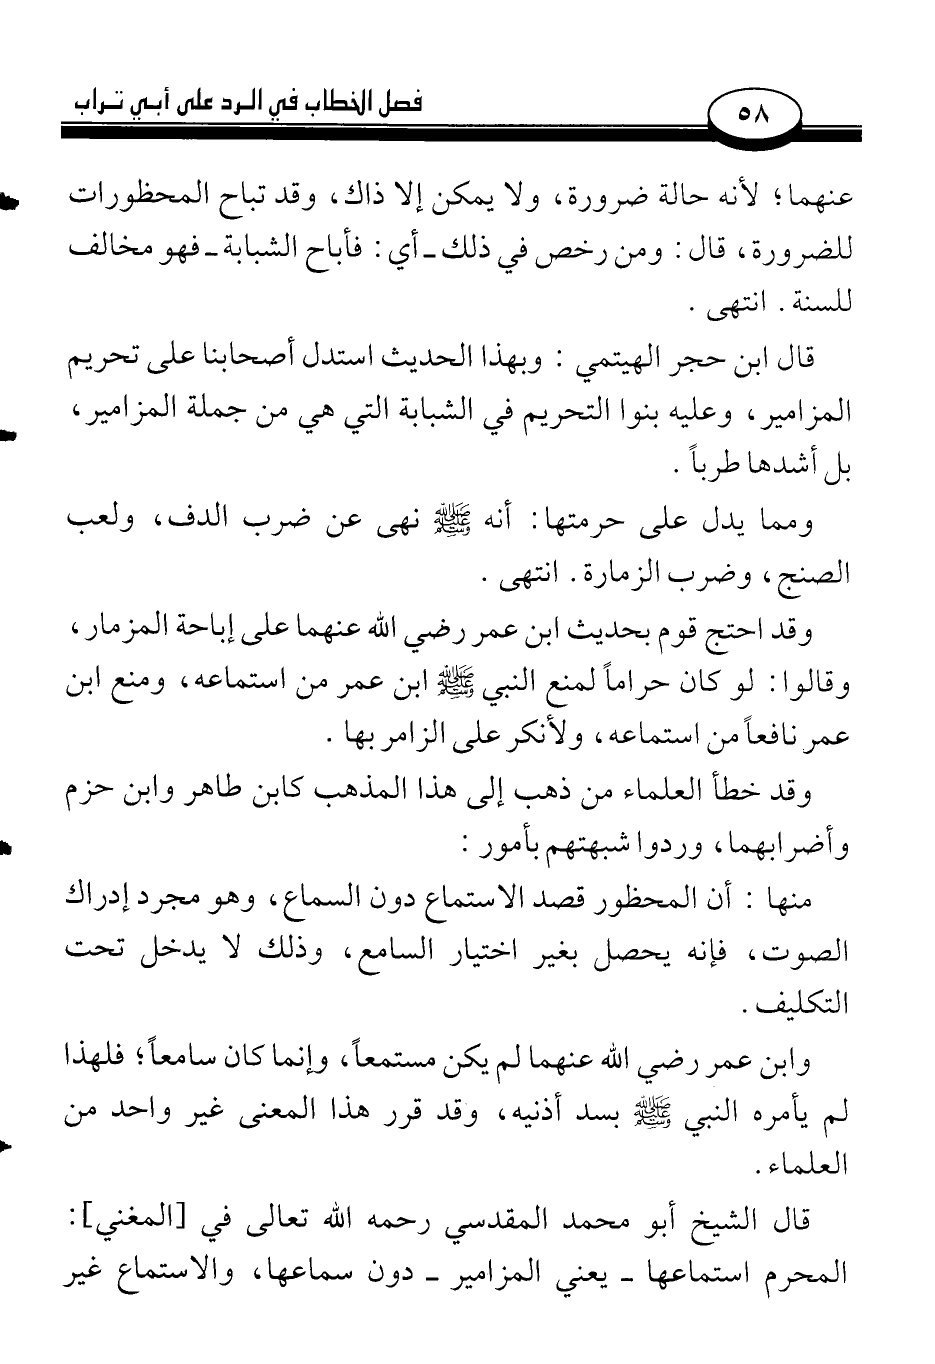 فصل الخطاب في الرد على أبي تراب
٥٨
عنهما؛ لأنه حالة ضرورة، ولا يمكن إلا ذاك، وقد تباح المحظورات
للضرورة، قال: ومن رخص في ذلك ـ أي: فأباح الشبابة ـ فهو مخالف
للسنة. انتهى.
قال ابن حجر الهيتمي: وبهذا الحديث استدل أصحابنا على تحريم
المزامير، وعليه بنوا التحريم في الشبابة التي هي من جملة المزامير،
بل أشدها طرباً.
ومما يدل على حرمتها: أنه ﷺ نهى عن ضرب الدف، ولعب
الصنج، وضرب الزمارة. انتهى.
وقد احتج قوم بحديث ابن عمر رضي الله عنهما على إباحة المزمار،
وقالوا: لو كان حراماً لمنع النبي ﷺ ابن عمر من استماعه، ومنع ابن
عمر نافعاً من استماعه، ولأنكر على الزامر بها.
وقد خطأ العلماء من ذهب إلى هذا المذهب كابن طاهر وابن حزم
وأضرابهما، وردوا شبهتهم بأمور:
منها: أن المحظور قصد الاستماع دون السماع، وهو مجرد إدراك
الصوت، فإنه يحصل بغير اختيار السامع، وذلك لا يدخل تحت
التكليف.
وابن عمر رضي الله عنهما لم يكن مستمعاً، وإنما كان سامعاً؛ فلهذا
لم يأمره النبي ﷺ بسد أذنيه، وقد قرر هذا المعنى غير واحد من
العلماء.
قال الشيخ أبو محمد المقدسي رحمه الله تعالى في [المغني]:
المحرم استماعها ـ يعني المزامير ـ دون سماعها، والاستماع غير